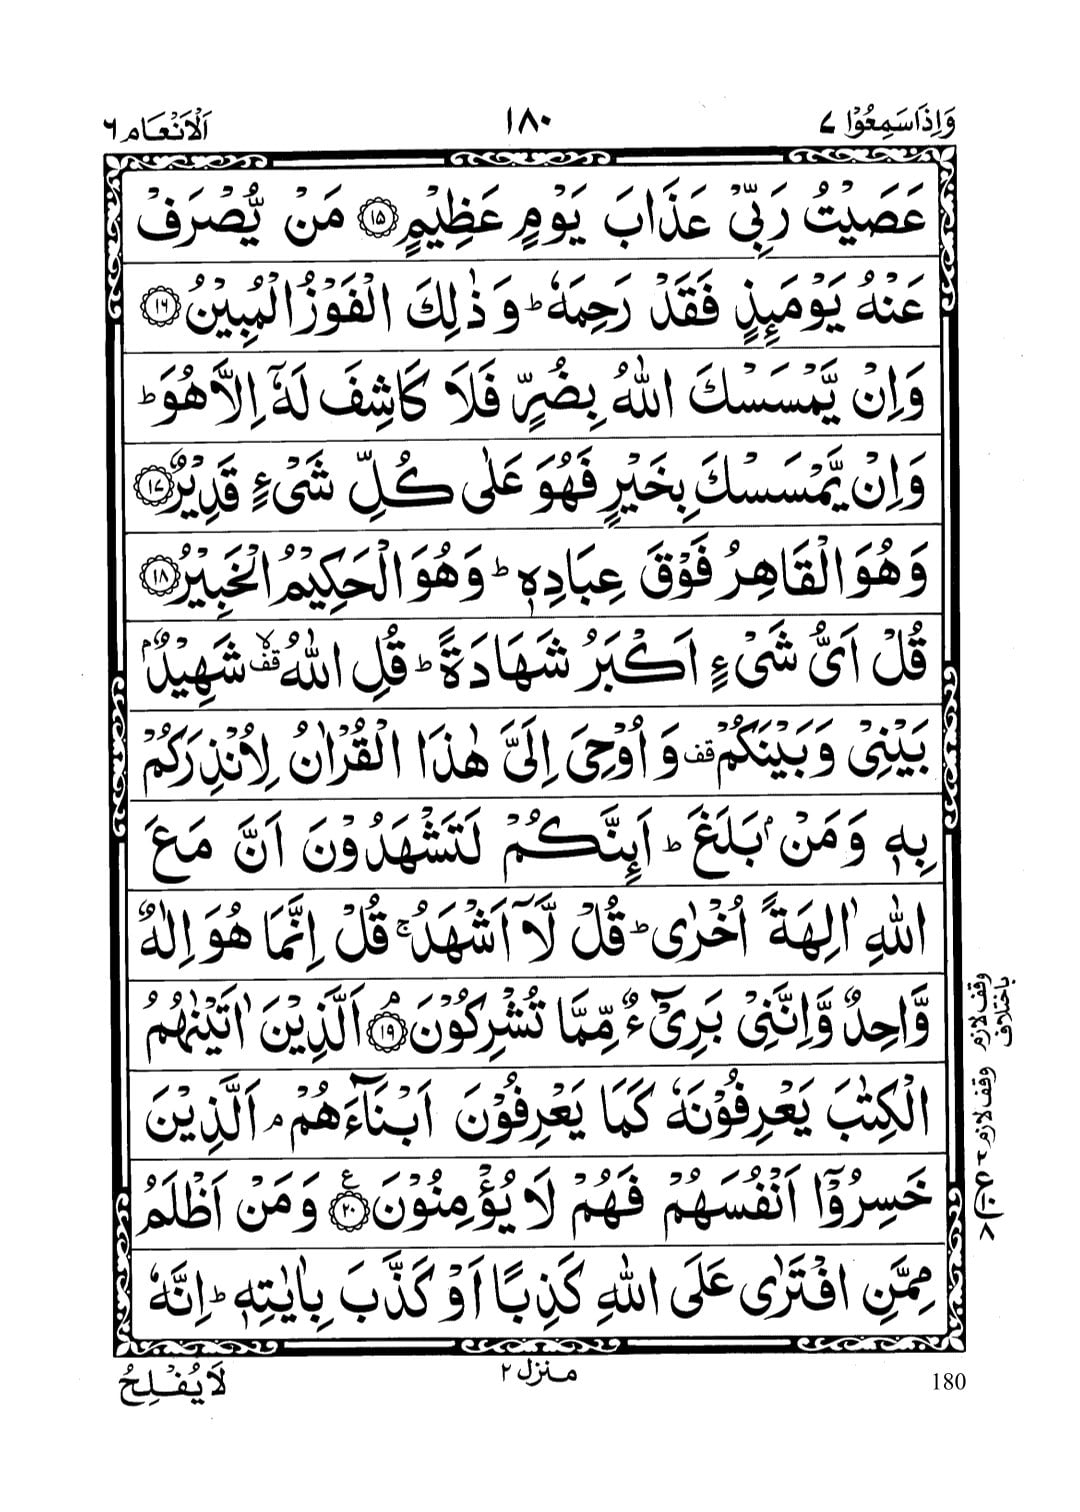 وَاِذَا سَمِعُوْا ٧
١٨٠
اَلْاَنْعَام ٦
عَصَيْتُ رَبِّيْ عَذَابَ يَوْمٍ عَظِيْمٍ ۝١٥ مَنْ يُّصْرَفْ
عَنْهُ يَوْمَىِٕذٍ فَقَدْ رَحِمَهٗ ؕ وَذٰلِكَ الْفَوْزُ الْمُبِيْنُ ۝١٦
وَاِنْ يَّمْسَسْكَ اللّٰهُ بِضُرٍّ فَلَا كَاشِفَ لَهٗۤ اِلَّا هُوَ ؕ
وَاِنْ يَّمْسَسْكَ بِخَيْرٍ فَهُوَ عَلٰى كُلِّ شَيْءٍ قَدِيْرٌ ۝١٧
وَهُوَ الْقَاهِرُ فَوْقَ عِبَادِهٖ ؕ وَهُوَ الْحَكِيْمُ الْخَبِيْرُ ۝١٨
قُلْ اَيُّ شَيْءٍ اَكْبَرُ شَهَادَةً ؕ قُلِ اللّٰهُ ۙ قف شَهِيْدٌۢ
بَيْنِيْ وَبَيْنَكُمْ قف وَاُوْحِيَ اِلَيَّ هٰذَا الْقُرْاٰنُ لِاُنْذِرَكُمْ
بِهٖ وَمَنْۢ بَلَغَ ؕ اَىِٕنَّكُمْ لَتَشْهَدُوْنَ اَنَّ مَعَ
اللّٰهِ اٰلِهَةً اُخْرٰى ؕ قُلْ لَّاۤ اَشْهَدُ ۚ قُلْ اِنَّمَا هُوَ اِلٰهٌ
وَّاحِدٌ وَّاِنَّنِيْ بَرِيْٓءٌ مِّمَّا تُشْرِكُوْنَ ۘ ۝١٩ اَلَّذِيْنَ اٰتَيْنٰهُمُ
الْكِتٰبَ يَعْرِفُوْنَهٗ كَمَا يَعْرِفُوْنَ اَبْنَآءَهُمْ ۘ اَلَّذِيْنَ
خَسِرُوْۤا اَنْفُسَهُمْ فَهُمْ لَا يُؤْمِنُوْنَ ۝٢٠ ع وَمَنْ اَظْلَمُ
مِمَّنِ افْتَرٰى عَلَى اللّٰهِ كَذِبًا اَوْ كَذَّبَ بِاٰيٰتِهٖ ؕ اِنَّهٗ
وقف لازم
باختلاف
وقف لازم
لَا يُفْلِحُ
منزل ٢
180